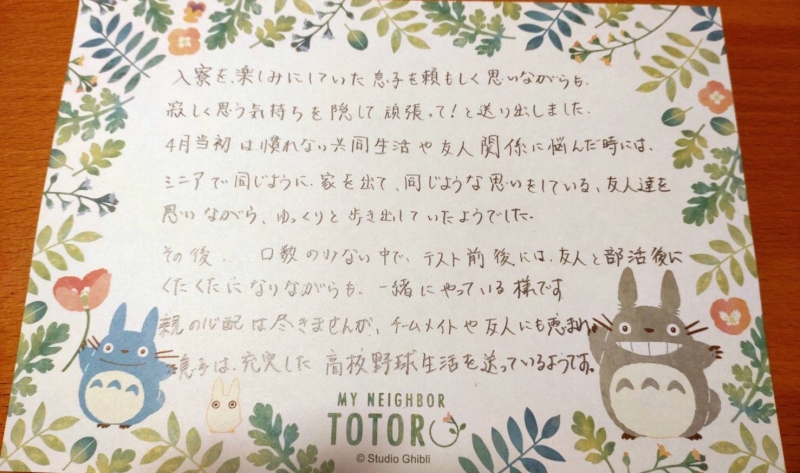 入寮を、楽しみにしていた息子を頼もしく思いながらも、
寂しく思う気持ちを隠して頑張って！と送り出しました。
4月当初は慣れない共同生活や友人関係に悩んだ時には、
シニアで同じように、家を出て、同じような思いをしている、友人達を
思いながら、ゆっくりと歩き出していたようでした。
その後、口数の少ない中で、テスト前後には、友人と部活後に
くたくたになりながらも、一緒にやっている様です
親の心配は尽きませんが、チームメイトや友人にも恵まれ。
息子は、充実した高校野球生活を送っているようです。
MY NEIGHBOR
TOTORO
© Studio Ghibli